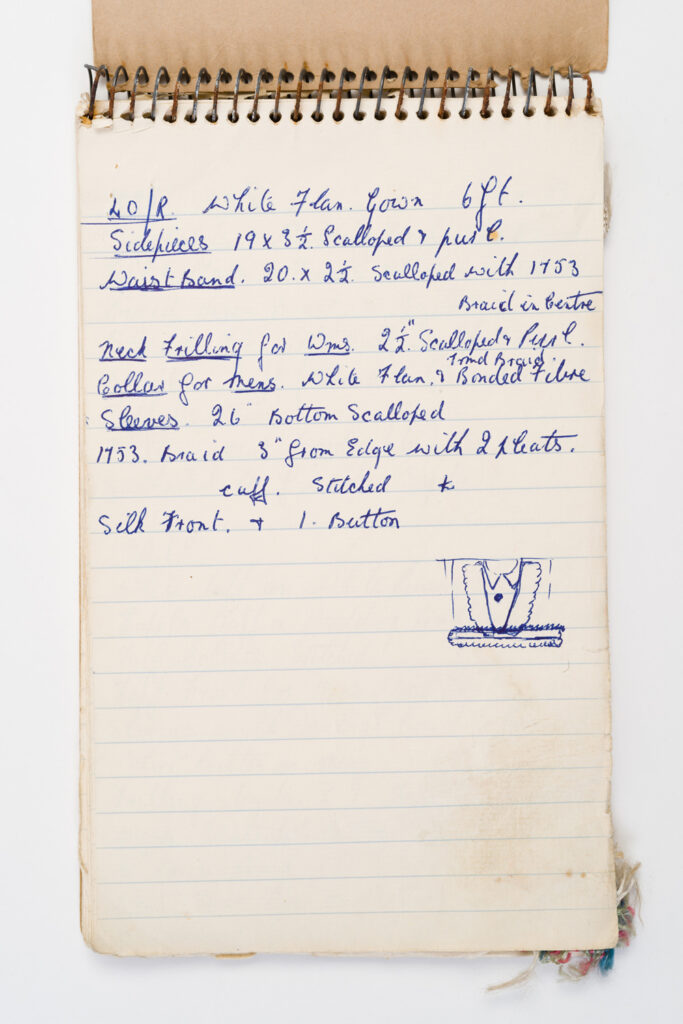 20/R. White Flan. Gown 6ft.
Sidepieces 19 x 3½. Scalloped & purl.
Waist Band. 20. x 2½. Scalloped with 1753
Braid in Centre
Neck Frilling for Wms. 2½" Scalloped & Purl.
Trmd Braid.
Collar for Mens. White Flan. & Bonded Fibre
Sleeves. 26" Bottom Scalloped
1753. Braid 3" from Edge with 2 pleats.
cuff. Stitched
Silk Front. & 1. Button